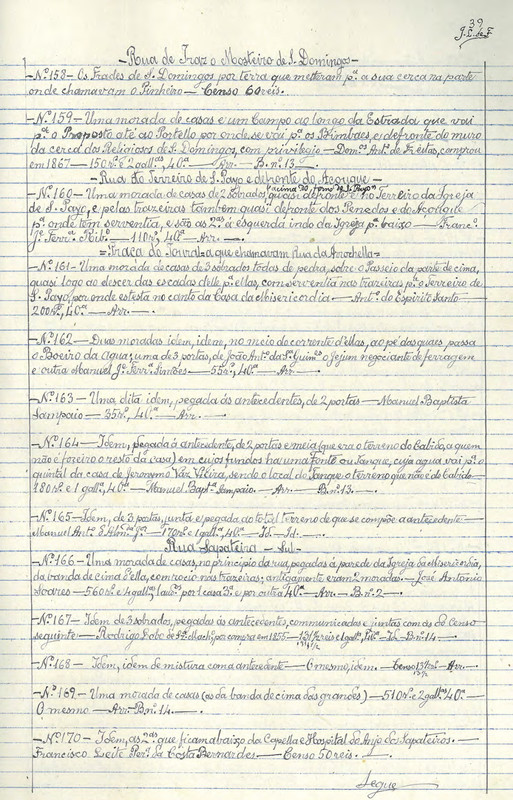 39
J. L. de F.
- Rua de Traz o Mosteiro de S. Domingos -
- Nº. 158 - Os Frades de S. Domingos por terra que metteram pª. a sua cerca na parte
onde chamavam o Pinheiro - Censo 60 reis. -
- Nº. 159 - Uma morada de casas e um Campo ao longo da Estrada que vai
pª. o Proposto até ao Portello por onde se vai pª. os Bimbaes, e defronte do muro
da cerca dos Religiosos de S. Domingos, com privilegio - Domºs. Antº. de Freitas, comprou
em 1867 - 150 rs. e 2 gallªs., 40.ª - Arr. - B. nº. 13. -
- Rua do Terreiro de S. Payo e defronte do Açougue -
- Nº. 160 - Uma morada de casas de 2 sobrados, quasi defronte e no Terreiro da Igreja
de S. Payo, e pelas trazeiras tambem quasi defronte dos Penedos e do Açougue
pª. onde têm serventia, e são as 2.ªs á esguerda indo da Igreja pª. baixo - Francº.
Jº. Ferrª. Ribº. - 110 rs., 40.ª - Arr. -
= Praça do Toural = a que chamavam Rua da Arrochella =
- Nº. 161 - Uma morada de casas de 3 sobrados todas de pedra, sobre o Passeio da parte de cima,
quasi logo ao descer das escadas delle pª. ellas, com serventia nas trazeiras pª. o Terreiro de
S. Payo, por onde estesta no canto da Casa da Misericordia - Antº. do Espirito Santo
200 rs., 40.ª - Arr. -
- Nº. 162 - Duas moradas idem, idem, no meio do corrente d'ellas, ao pé das quaes, passa
o Boeiro da Agua; uma de 3 portas, de João Antº. da Sª. Guimºs. o Jejim negociante de ferragem
e outra Manuel Jº. Ferrª. Simões - 55 rs., 40.ª - Arr. -
- Nº. 163 - Uma dita idem, pegada ás antecedentes, de 2 portas - Manuel Baptista
Sampaio - 35 rs., 40.ª - Arr. -
- Nº. 164 - Idem, pegada á antecedente, de 2 portas e meia (que era o terreno do Cabido, a quem
não é foreiro o resto da casa) em cujos fundos ha uma Fonte ou Tanque, cuja agua vai pª. o
quintal da casa de Jeronymo Vaz Vieira, sendo o local do Tanque o terreno que não é do Cabido
180 rs. e 1 gallª., 40.ª - Manuel Baptª. Sampaio. - Arr. - B. nº. 13. -
- Nº. 165 - Idem, de 3 portas, junta e pegada, ao total terreno de que se compõe a antecedente -
Manuel Antº. - 170 rs. e 1 gallª., 40.ª - Id. - Id. -
Rua Sapateira - Sul -
- Nº. 166 - Uma morada de casas, no principio da rua, pegadas á parede da Igreja da Misericordia,
da banda de cima d'ella, com rocio nas trazeiras; antigamente eram 2 moradas. - José Antonio
Soares - 560 rs. e 4 gallªs., por 1 casa 3.ª e por outra 40.ª - Arr. - B. nº. 2 -
- Nº. 167 - Idem de 3 sobrados, pegadas ás antecedentes, communicadas e juntas com as do Censo
seguinte - Rodrigo Lobo de, por compra em 1855 - reis e 1 gallª., - Id. - B. nº. 14. -
- Nº. 168 - Idem, idem de mistura com a antecedente - O mesmo, idem. - Censo - Arr. -
- Nº. 169. - Uma morada de casas (as da banda de cima das grandes) - 510 rs. e 2 gallªs., 40.ª -
O mesmo - Arr. - B. nº. 14. -
- Nº. 170 - Idem, as 2.ªs que ficam abaixo da Capella e Hospital do Anjo dos Sapateiros. -
Francisco Leite Perª. da Costa Bernardes - Censo 50 reis. -
Segue -